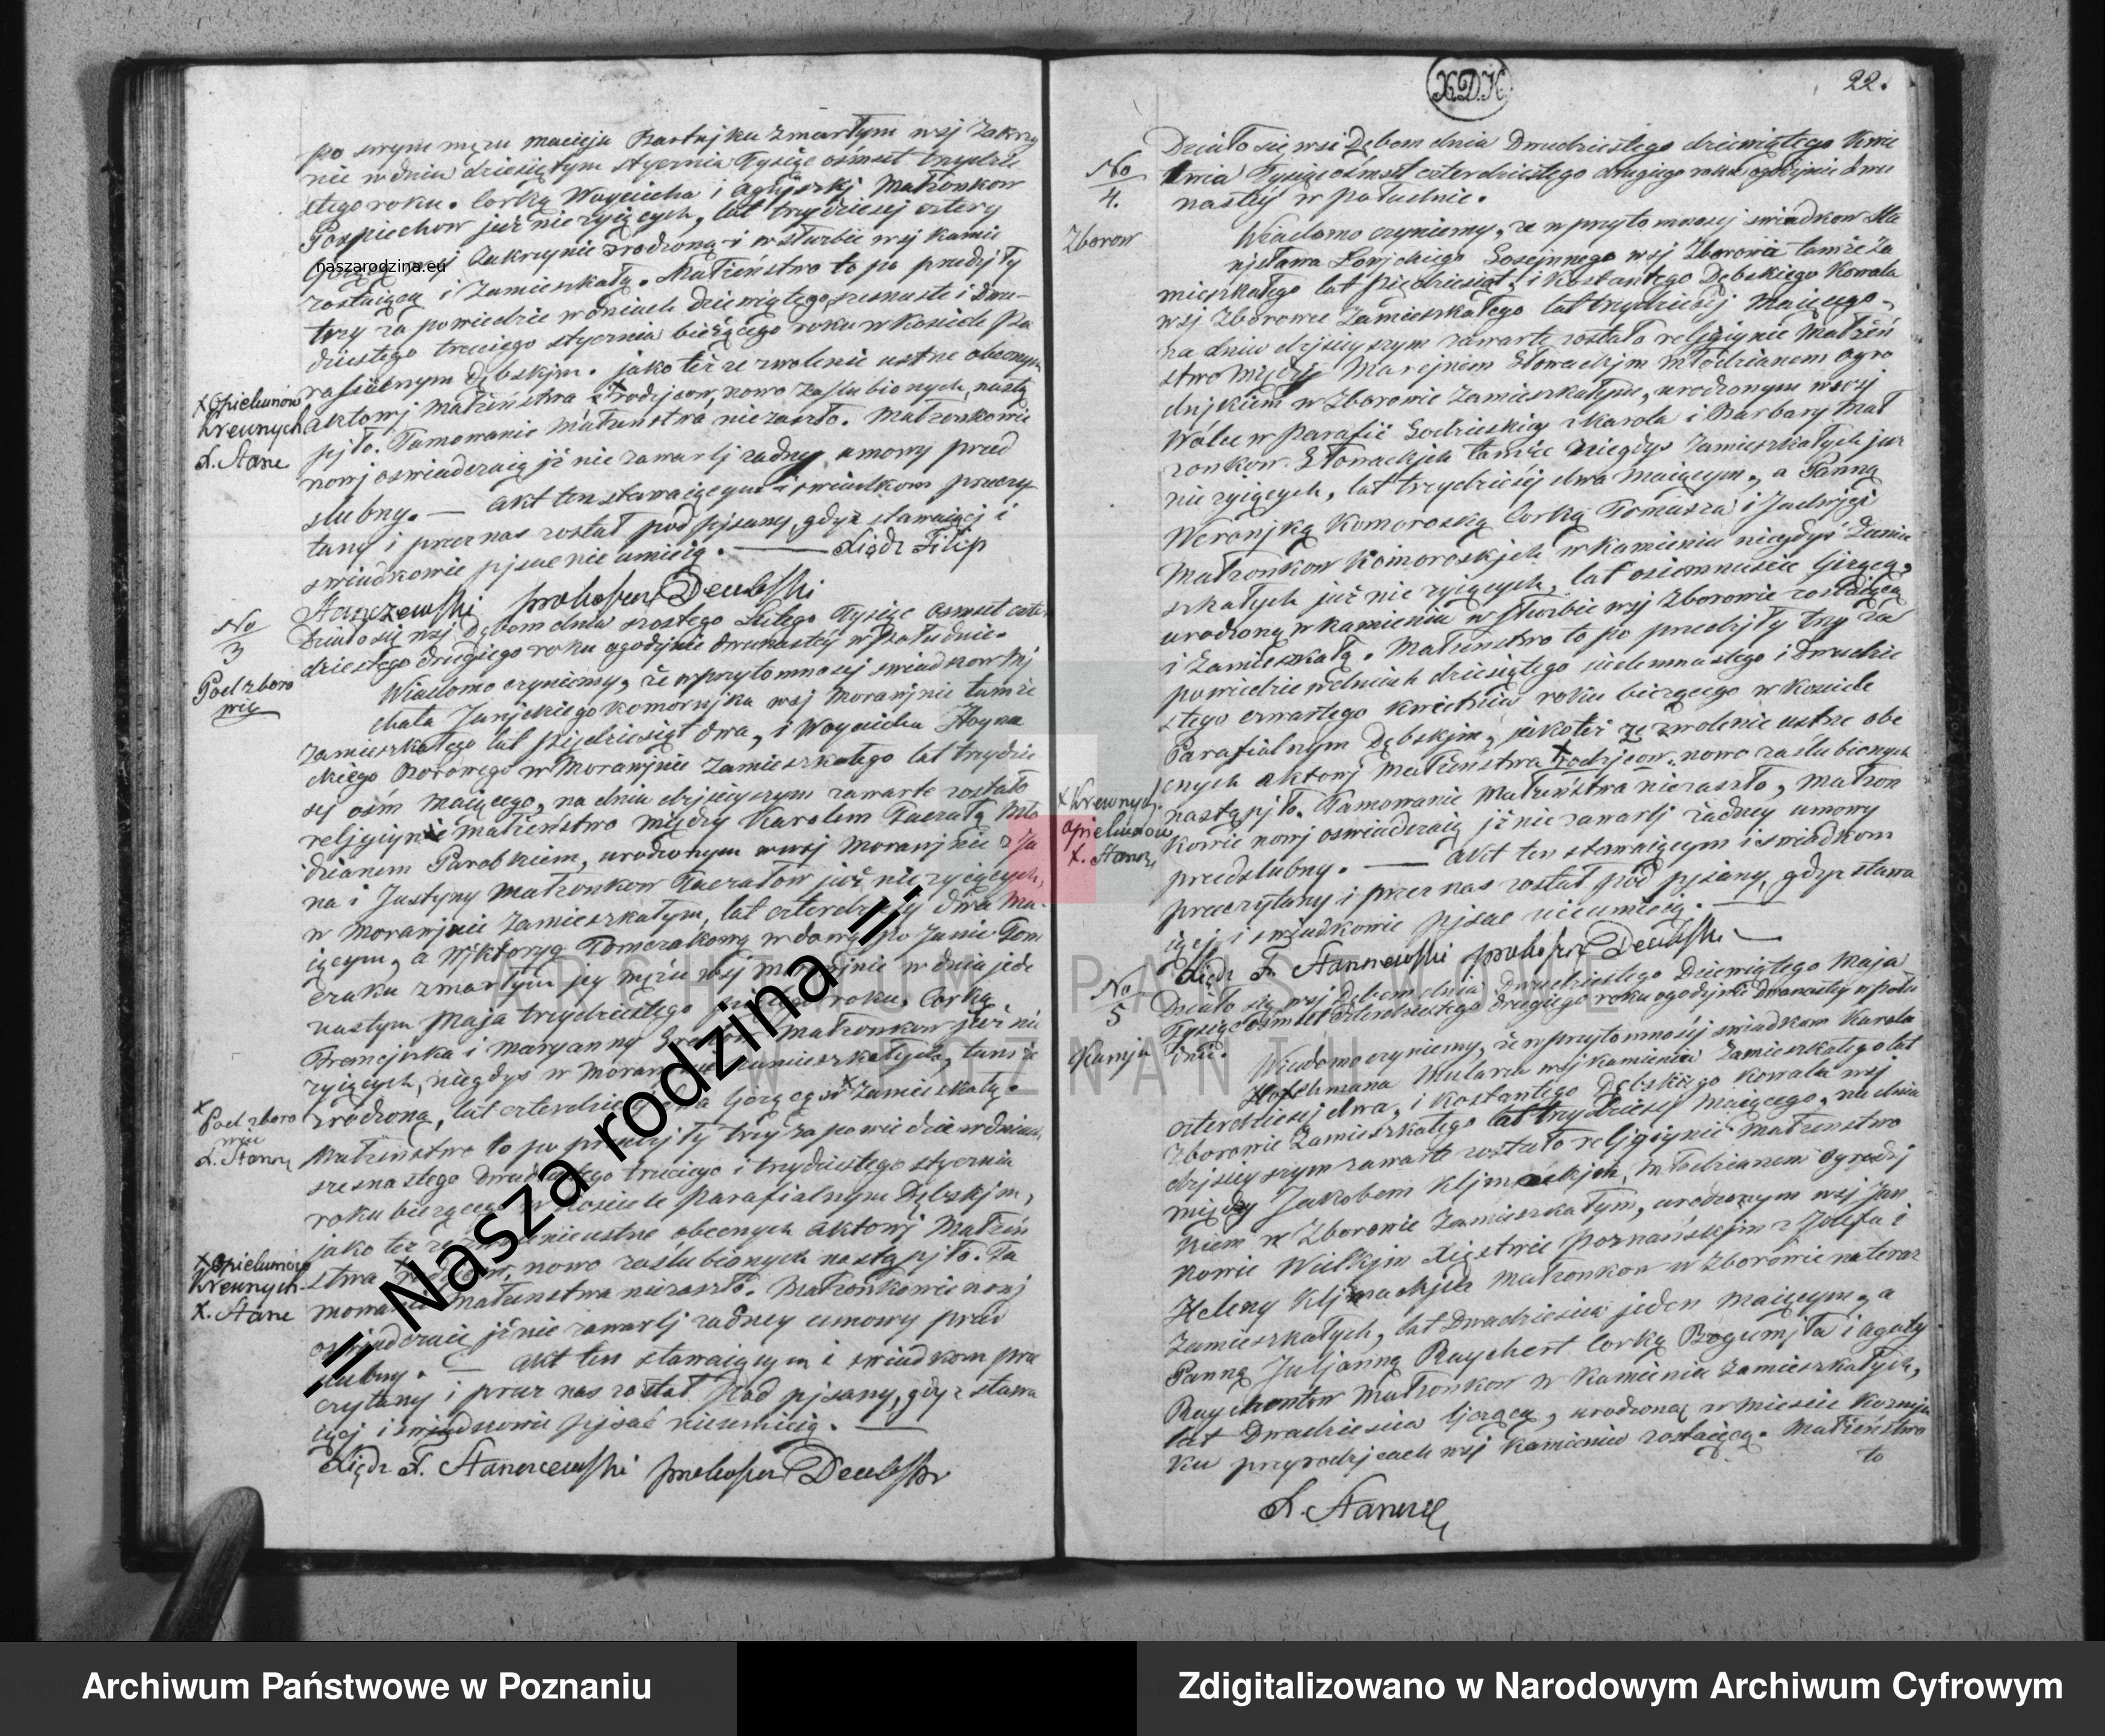 po swym mężu Macieju Bartnjku zmarłym wsj Zakrzy
nie w dniu dziesiątym stycznia Tysiąc ośmset trzydzie
stego roku. Corką Woyciecha i Agnjszkj Małżonkow
Pospiechow już nie zyiących, lat trzydziescj cztery
wsj Zakrzynie zrodzoną i w służbie wsj Kamie
zostaiącą i Zamieszkałą. Małżeństwo to po przedjły
trzy zapowiedzie w dniach dziewiątego, szesnaste i dwu-
dziestego trzeciego stycznia bieżącego roku w Kosciele Pa
rafialnym Dębskjm. jako też ze zwolenie ustne obecnym
aktowj Małżeństwa rodzjcow, nowo Zaślubionych, nastą
pjło. Tamowanie Małżenstwa nie zaszło. Małżonkowie
nowj oswiadczaią jż nie zawarlj żadney umowy przed
slubny. — Akt ten stawaiącym i swiadkom przeczy
tany i przez nas został pod pjsany, gdyż stawaiącj i
swiadkowie pjsac nie umieią. — Xiądz Filip
Stanczewski proboszcz Dembski
x Opiekunów
Krewnych
X. Stane
No
3
Podzboro
wie
Działo się wsj Dębem dnia szostego Lutego Tysiąc osmset czter
dziestego drugiego roku o godzjnie dwunastey w Południe.
Wiadomo czyniemy, że w przytomnoscj swiadkow Mj
chała Janjckiego komornjka wsj Morawjnie tamże
Zamieszkałego lat pjędziesiąt dwa, i Woyciecha
ckiego Borowego w Morawjnie Zamieszkałego lat trzydzie
scj ośm maiącego, na dniu dzjsieyszym zawarte zostało
reljgiynie małżeństwo między Karolem Kaczałą Mło
dzianem Parobkiem, urodzonym w wsj Morawjnie z Ja
na i Justyny Małżonkow Kaczałow już nie zyiących,
w Morawjnie Zamieszkałym, lat czterdziescj dwa Ma-
iącym, a Wjktoryą Tomczakową wdową po Janie Tom
czaku zmarłym jey mężu wsj Morawjnie w dniu jede
nastym Maja trzydziestego roku, Corką
Francjszka i Maryanny Małżonkow już nie
zyiących, niegdys w Moraw zamieszkałych, tamże
zrodzoną, lat czterdziescj ljczącą x Zamieszkałą.
Małżeństwo to po przedjły trzy zapowiedzie w dniach
szesnastego Dwudziestego trzeciego i trzydziestego stycznia
roku bieżącego w Kosciele Parafialnym Dębskjm,
jako też ze zwolenie ustne obecnych Aktowj Małżeń
stwa rodzjcow, nowo zaślubionych nastąpjło. Ta
mowanie Małżenstwa nie zaszło. Małżonkowie nowj
oswiadczaią jż nie zawarlj żadney umowy przed
slubny. — Akt ten stawaiącym i swiadkom prze
czytany i przez nas został Pod pjsany, gdyż stawa
iącj i swiadkowie pjsać nieumieią. —
Xiądz F. Stanczewski proboszcz Dembski
x
Podzboro
wiu
X. Stancz
x Opiekunow
Krewnych
X. Stane
XDK
22.
No
4.
Zborow
Działo się wsi Dębem dnia Dwudziestego dziewiątego Kwie
tnia Tysiąc ośmset czterdziestego drugiego roku o godzjnie dwu
nastéy w południe.
Wiadomo czyniemy, że w przytomnoscj swiadkow Sta
njsława Gosejnnego wsj Zborowie tamże Za
mieszkałego lat pięćdziesiąt, i Kostantego Dębskiego Kowala
wsj Zborowie Zamieszkałego lat trzydziescj Maiącego,
na dniu dzjsieyszym zawarte zostało reljgiynie Małżeń
stwo między Marcjnem Słowackjm Młodzianem ogro
dnjkiem w Zborowie Zamieszkałym, urodzonym w wsj
w Parafii z Karola i Barbary Mał
zonkow Słowackjch tamże niegdys Zamieszkałych już
nie zyiących, lat trzydziescj dwa Maiącym, a Panną
Weronjką Komoroską Corką Tomasza i Jadwjgi
Małżonkow Komoroskjch w Kamieniu niegdys Zamie
szkałych już nie zyiących, lat osiemnascie ljczącą,
urodzoną w Kamieniu w służbie wsj Zborowie zostaiącą
i Zamieszkałą. Małżenstwo to po przedzjły trzy Za
powiedzie w dniach dziesiątego siedemnastego i dwudzie
stego czwartego kwietnia roku bierzącego w Kosciele
Parafialnym Dębskjm, jakoteż ze zwolenie ustne obe
cnych aktowj Małżeństwa x rodzjcow, nowo zaślubionych
nastąpjło. Tamowanie Małżeństwa niezaszło, Małżon
kowie nowj oswiadczaią jż nie zawarlj żadney umowy
przedslubny. — Akt ten stawaiącym i swiadkom
przeczytany i przez nas został pod pjsany, gdyż stawa
iącj i swiadkowie pjsac nieumieią. —
Xiądz F. Stanczewski proboszcz Dembski —
x Krewnych
opiekunow
X. Stancz,
No
5
Kamjn
Działo się wsj Dębem dnia Dwudziestego Dziewiątego Maja
Tysiąc ośmset czterdziestego drugiego roku o godzjnie dwunastey w połu
dnie.
Wiadomo czyniemy, że w przytomnoscj swiadkow Karola
Hofehmana Mularza wsj Kamieniu Zamieszkałego lat
czterdziescj dwa, i Kostantego Dębskiego Kowala wsj
Zborowie Zamieszkałego lat trzydziescj Maiącego, na dniu
dzjsieyszym zawarte zostało reljgiynie Małżenstwo
między Jakobem Kljmackjm, Młodzianem ogrodnj
kiem w Zborowie Zamieszkałym, urodzonym wsj Jan
kowie Wielkjm Xięstwie poznańskjm z Józefa i
Heleny Kljmackjch Małżonkow w Zborowie na teraz
Zamieszkałych, lat dwadziescia jeden Maiącym, a
Panną Juljanną Raychert Corką Bogumjła i Agaty
Raychertów Małżonkow w Kamieniu Zamieszkałych,
lat Dwadziescia ljczącą, urodzoną w miescie Kozmjn
ku przy rodzjcach wsj Kamieniu zostaiącą. Małżeństwo
to
X. Stancz
ARCHIWUM PAŃSTWOWE
W POZNANIU
naszarodzina.eu
= Nasza rodzina =
Archiwum Państwowe w Poznaniu
Zdigitalizowano w Narodowym Archiwum Cyfrowym